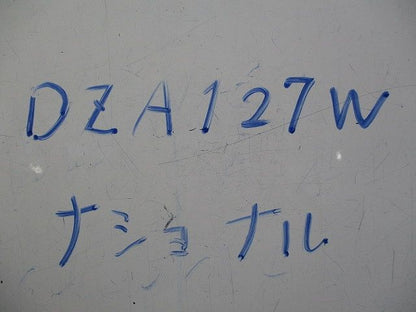 DZA127W
ナショナル